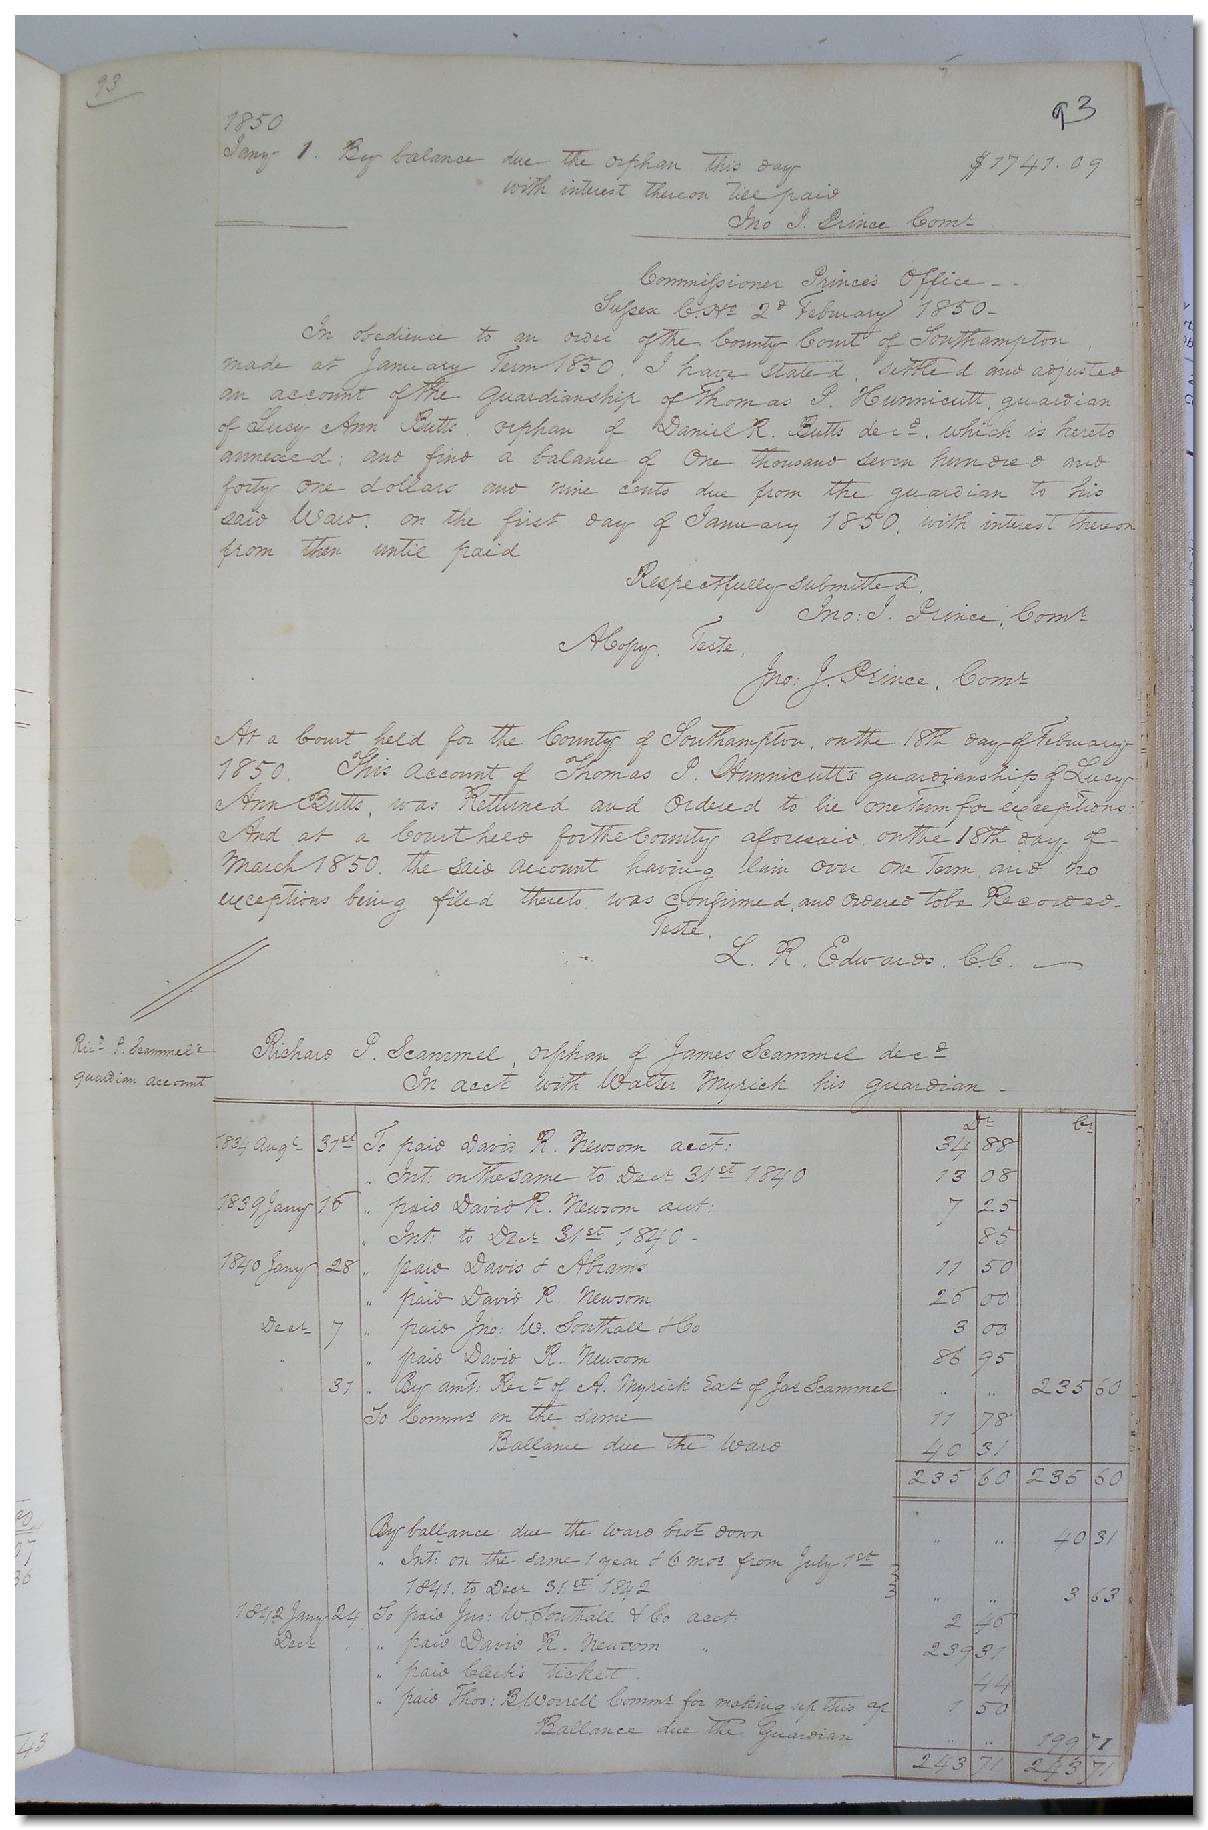 93
93
1850
Jany 1. By balance due the orphan this day $1741.09
with interest thereon till paid
Jno J. Prince Comr
Commissioner Prince's Office - -
Sussex C.Ho 2d February 1850 -
In obedience to an order of the County Court of Southampton
made at January Term 1850. I have stated, settled and adjusted
an account of the guardianship of Thomas P. Hunnicutt, guardian
of Lucy Ann Butts, orphan of Daniel R. Butts decd. which is hereto
annexed; and find a balance of One thousand seven hundred and
forty one dollars and nine cents due from the guardian to his
said Ward, on the first day of January 1850, with interest thereon
from then until paid
Respectfully submitted,
Jno: J. Prince, Comr
A Copy. Teste,
Jno: J. Prince, Comr
At a Court held for the County of Southampton, on the 18th day of February
1850. This account of Thomas P. Hunnicutt's guardianship of Lucy
Ann Butts, was Returned and Ordered to lie one Term for exceptions:
And at a Court held for the County aforesaid on the 18th day of
March 1850. the said account having lain over one Term, and no
exceptions being filed thereto, was confirmed, and ordered to be Recorded.
Teste,
L. R. Edwards. C.C.
Ricd P. Scammel's
guardian account
Richard P. Scammel, orphan of James Scammel decd
In acct with Walter Myrick his guardian -
Dr Cr
1834 Augt 31st To paid David R. Newsom acct: 34 88
" Int: on the same to Decr 31st 1840 13 08
1839 Jany 16 " paid David R. Newsom acct: 7 25
" Int: to Decr 31st 1840 - 85
1840 Jany 28 " paid Davis & Abrams 11 50
" paid David R. Newsom 26 00
Decr 7 " paid Jno: W. Southall & Co 3 00
" " paid David R. Newsom 86 95
31 " By amt: Recd of A. Myrick Exr of Jas Scammel " " 235 60
To Comms on the same 11 78
Ballance due the Ward 40 31
235 60 235 60
By ballance due the ward brot down " " 40 31
" Int: on the same 1 year & 6 mos from July 1st
1841. to Decr 31st 1842 " " 3 63
1842 Jany 24 To paid Jno: W. Southall & Co acct: 2 46
Decr " paid David R. Newsom " 239 31
" paid Clerk's ticket 44
" paid Thos: B. Worrell Commr for making up this a/c 1 50
Ballance due the Guardian " " 199 71
243 71 243 71
43